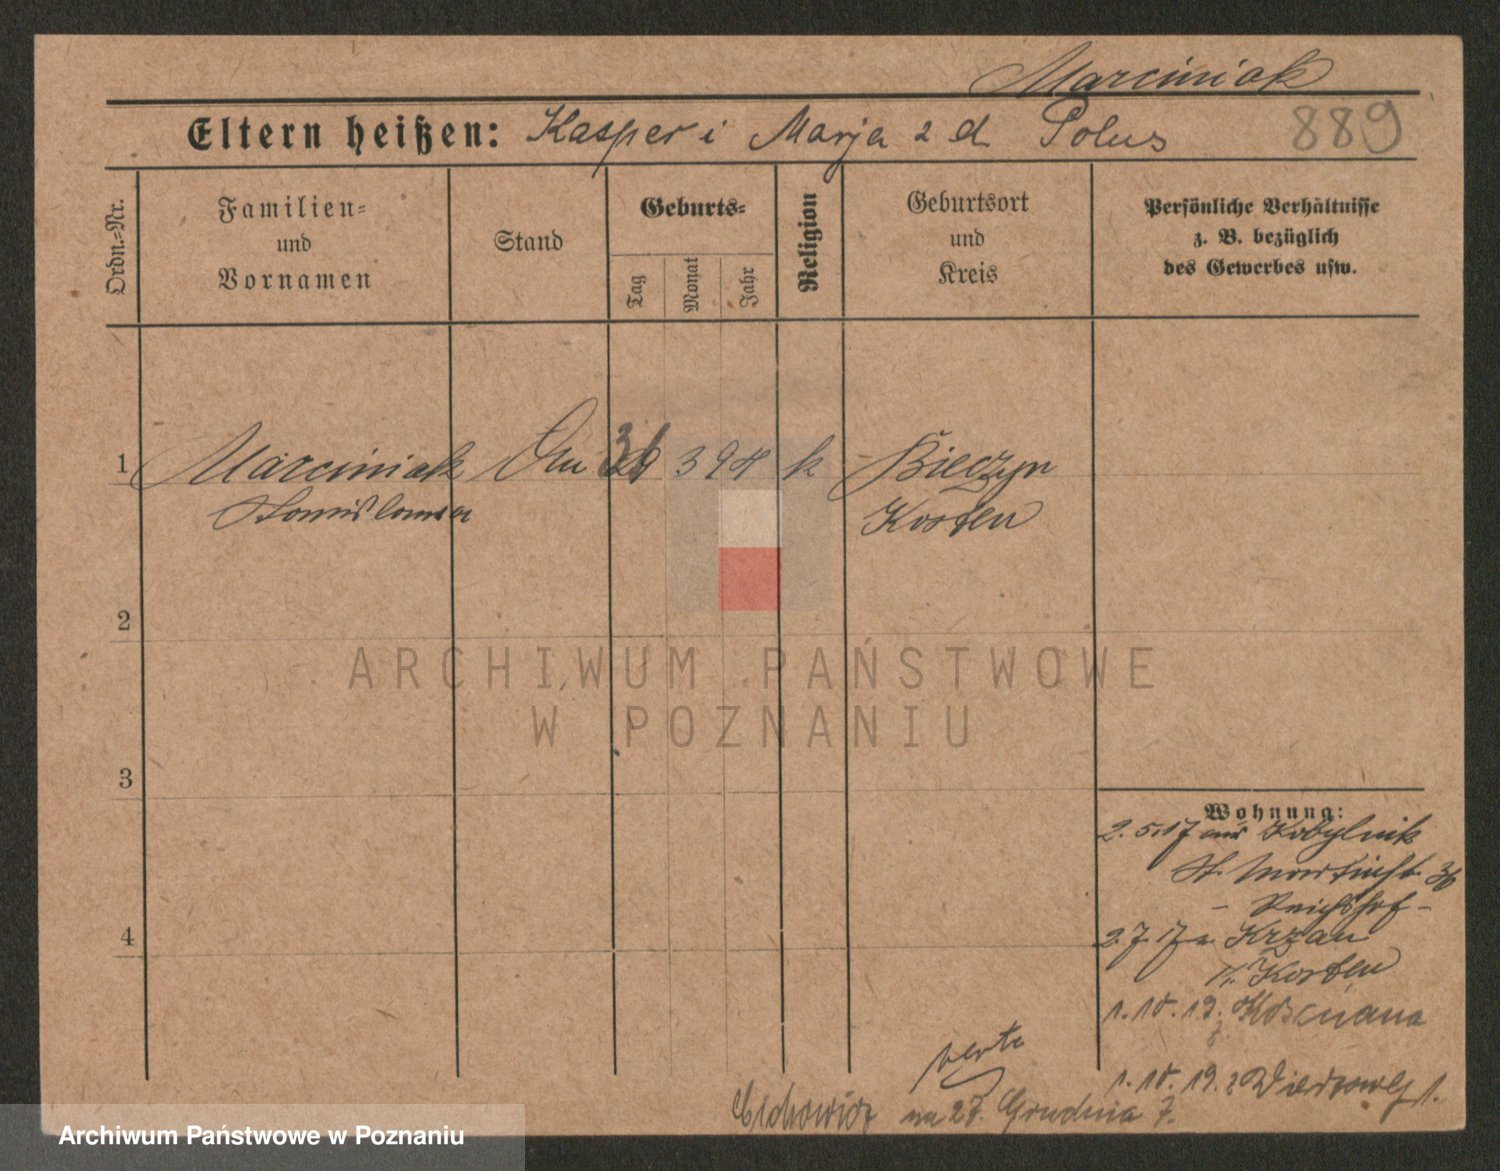 Marciniak
889
Eltern heißen: Kasper i Marja z d Polus
Ordn.=Nr.
Familien=
und
Vornamen
Stand
Geburts=
Tag
Monat
Jahr
Religion
Geburtsort
und
Kreis
Persönliche Verhältnisse
z. B. bezüglich
des Gewerbes usw.
1 Marciniak 3 98 k Bieczyn
Stanislawa Kosten
2
ARCHIWUM PAŃSTWOWE
W POZNANIU
3
Wohnung:
2. 5. 17 aus Kobylnik
St. Martinstr. 36
– Reichshof –
4
2. 7. 17 n. Krzan
Kr. Kosten
1. 10. 19. z Kościana
verte
1. 10. 19. z
Cichowicz na 27. Grudnia 7.
Archiwum Państwowe w Poznaniu